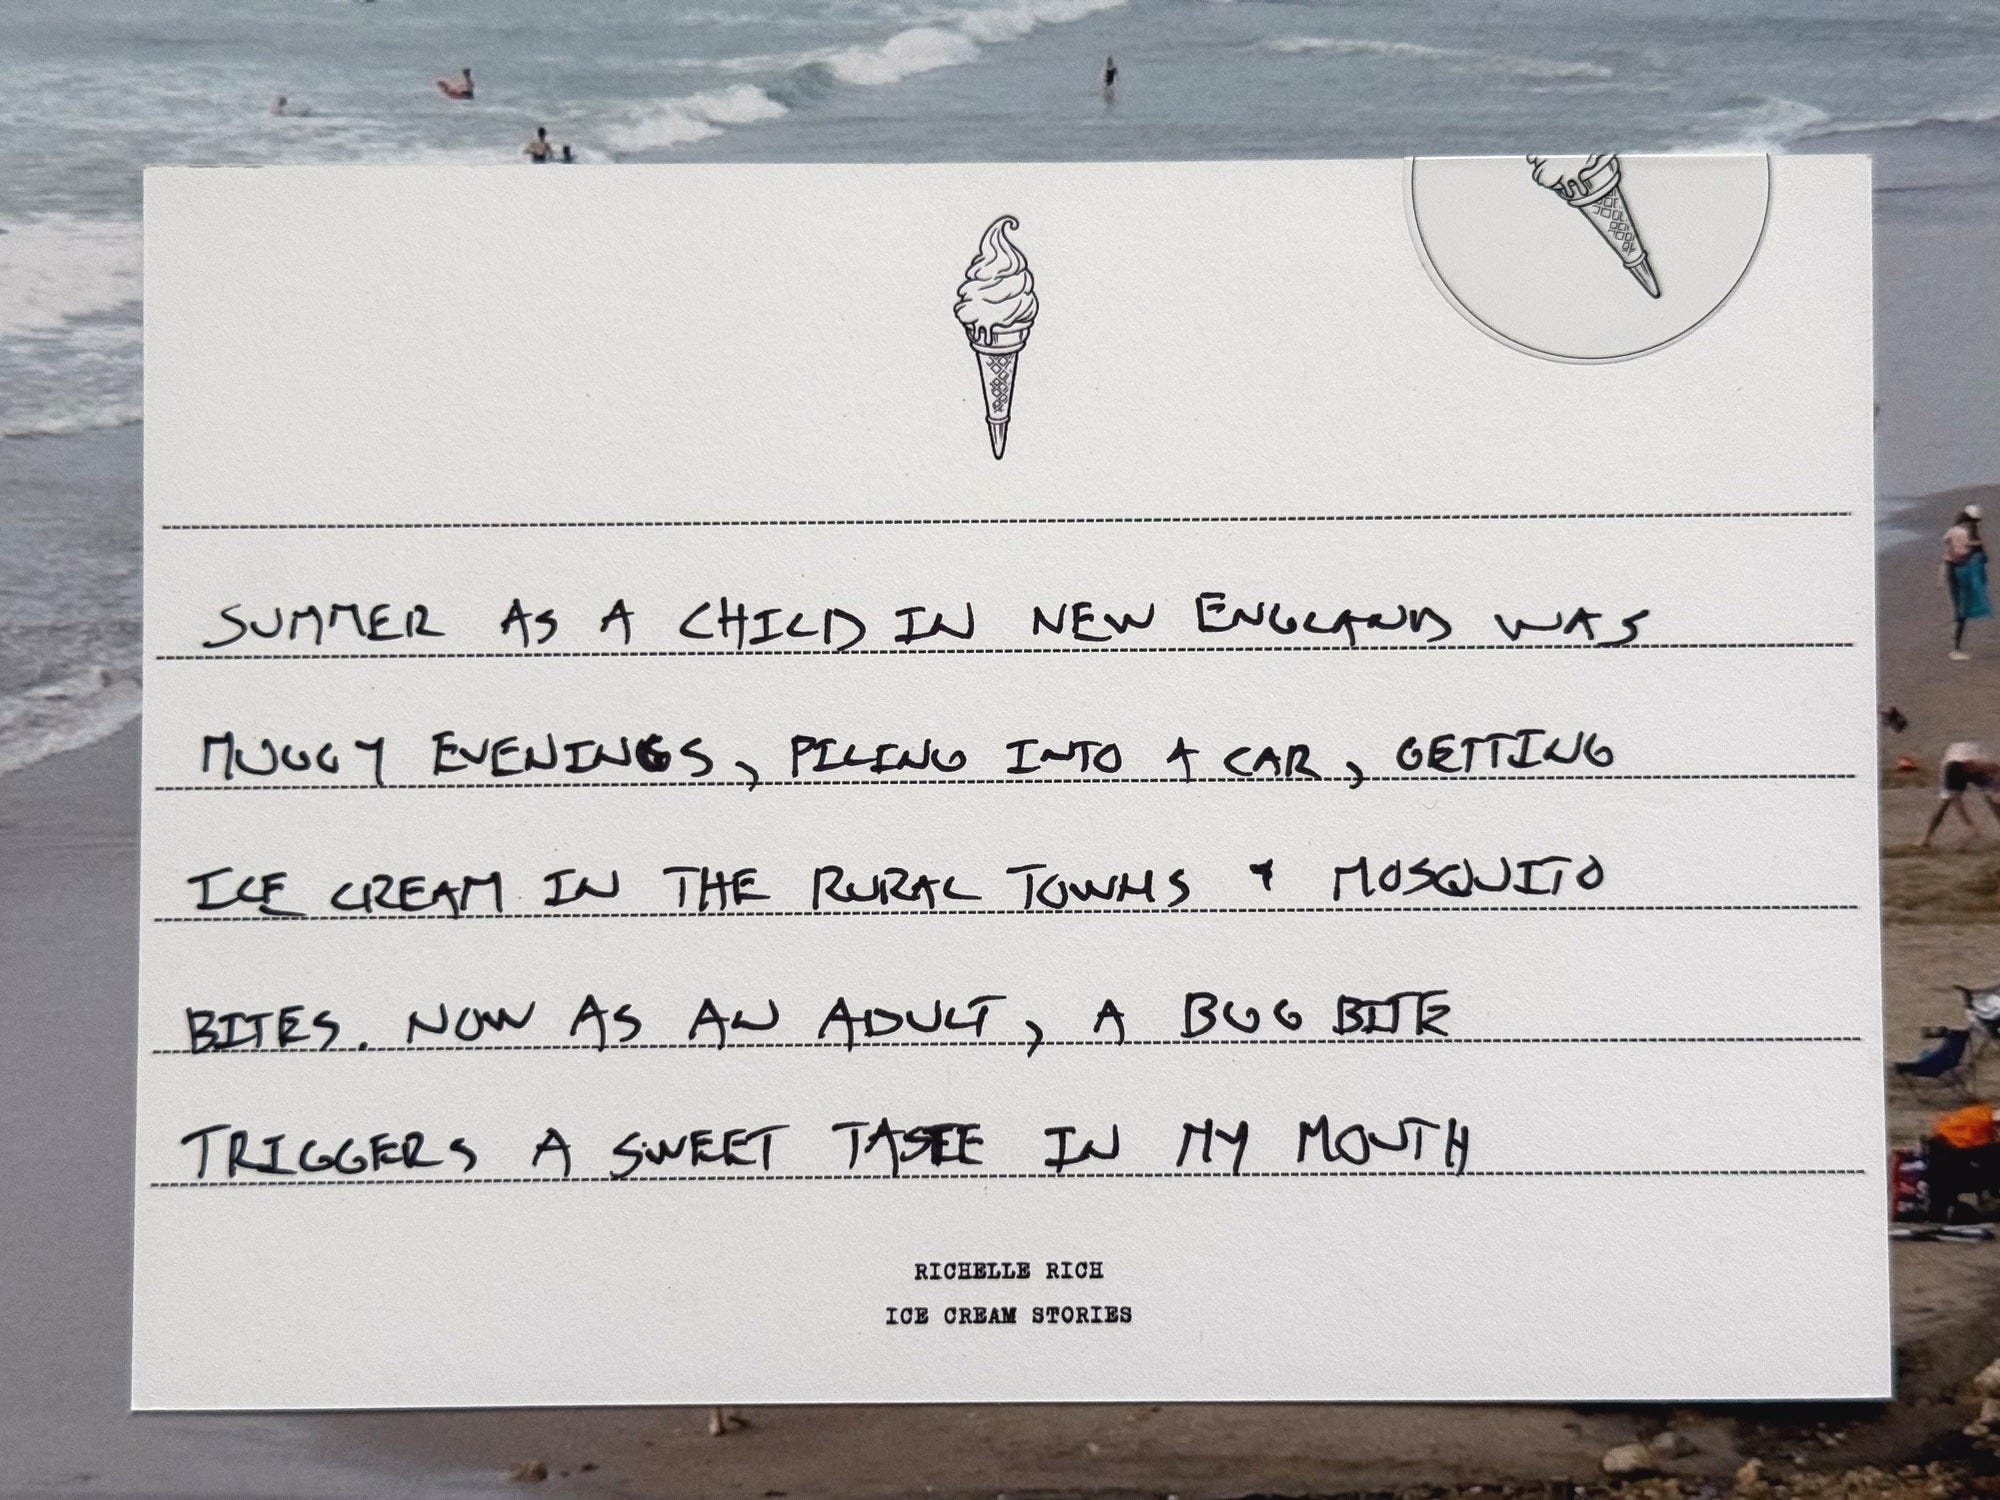 SUMMER AS A CHILD IN NEW ENGLAND WAS
MUGGY EVENINGS, PILING INTO A CAR, GETTING
ICE CREAM IN THE RURAL TOWNS & MOSQUITO
BITES. NOW AS AN ADULT, A BUG BITE
TRIGGERS A SWEET TASTE IN MY MOUTH
RICHELLE RICH
ICE CREAM STORIES